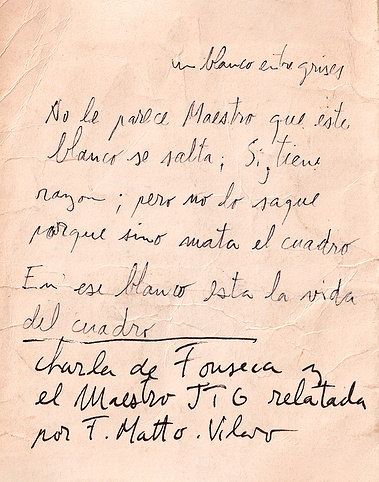 un blanco entre grises
No le parece Maestro que este
blanco se salta; Si, tiene
razon; pero no lo saque
porque sino mata el cuadro
En ese blanco esta la vida
del cuadro
charla de Fonseca y
el Maestro JTG relatada
por F. Matto. Vilaro